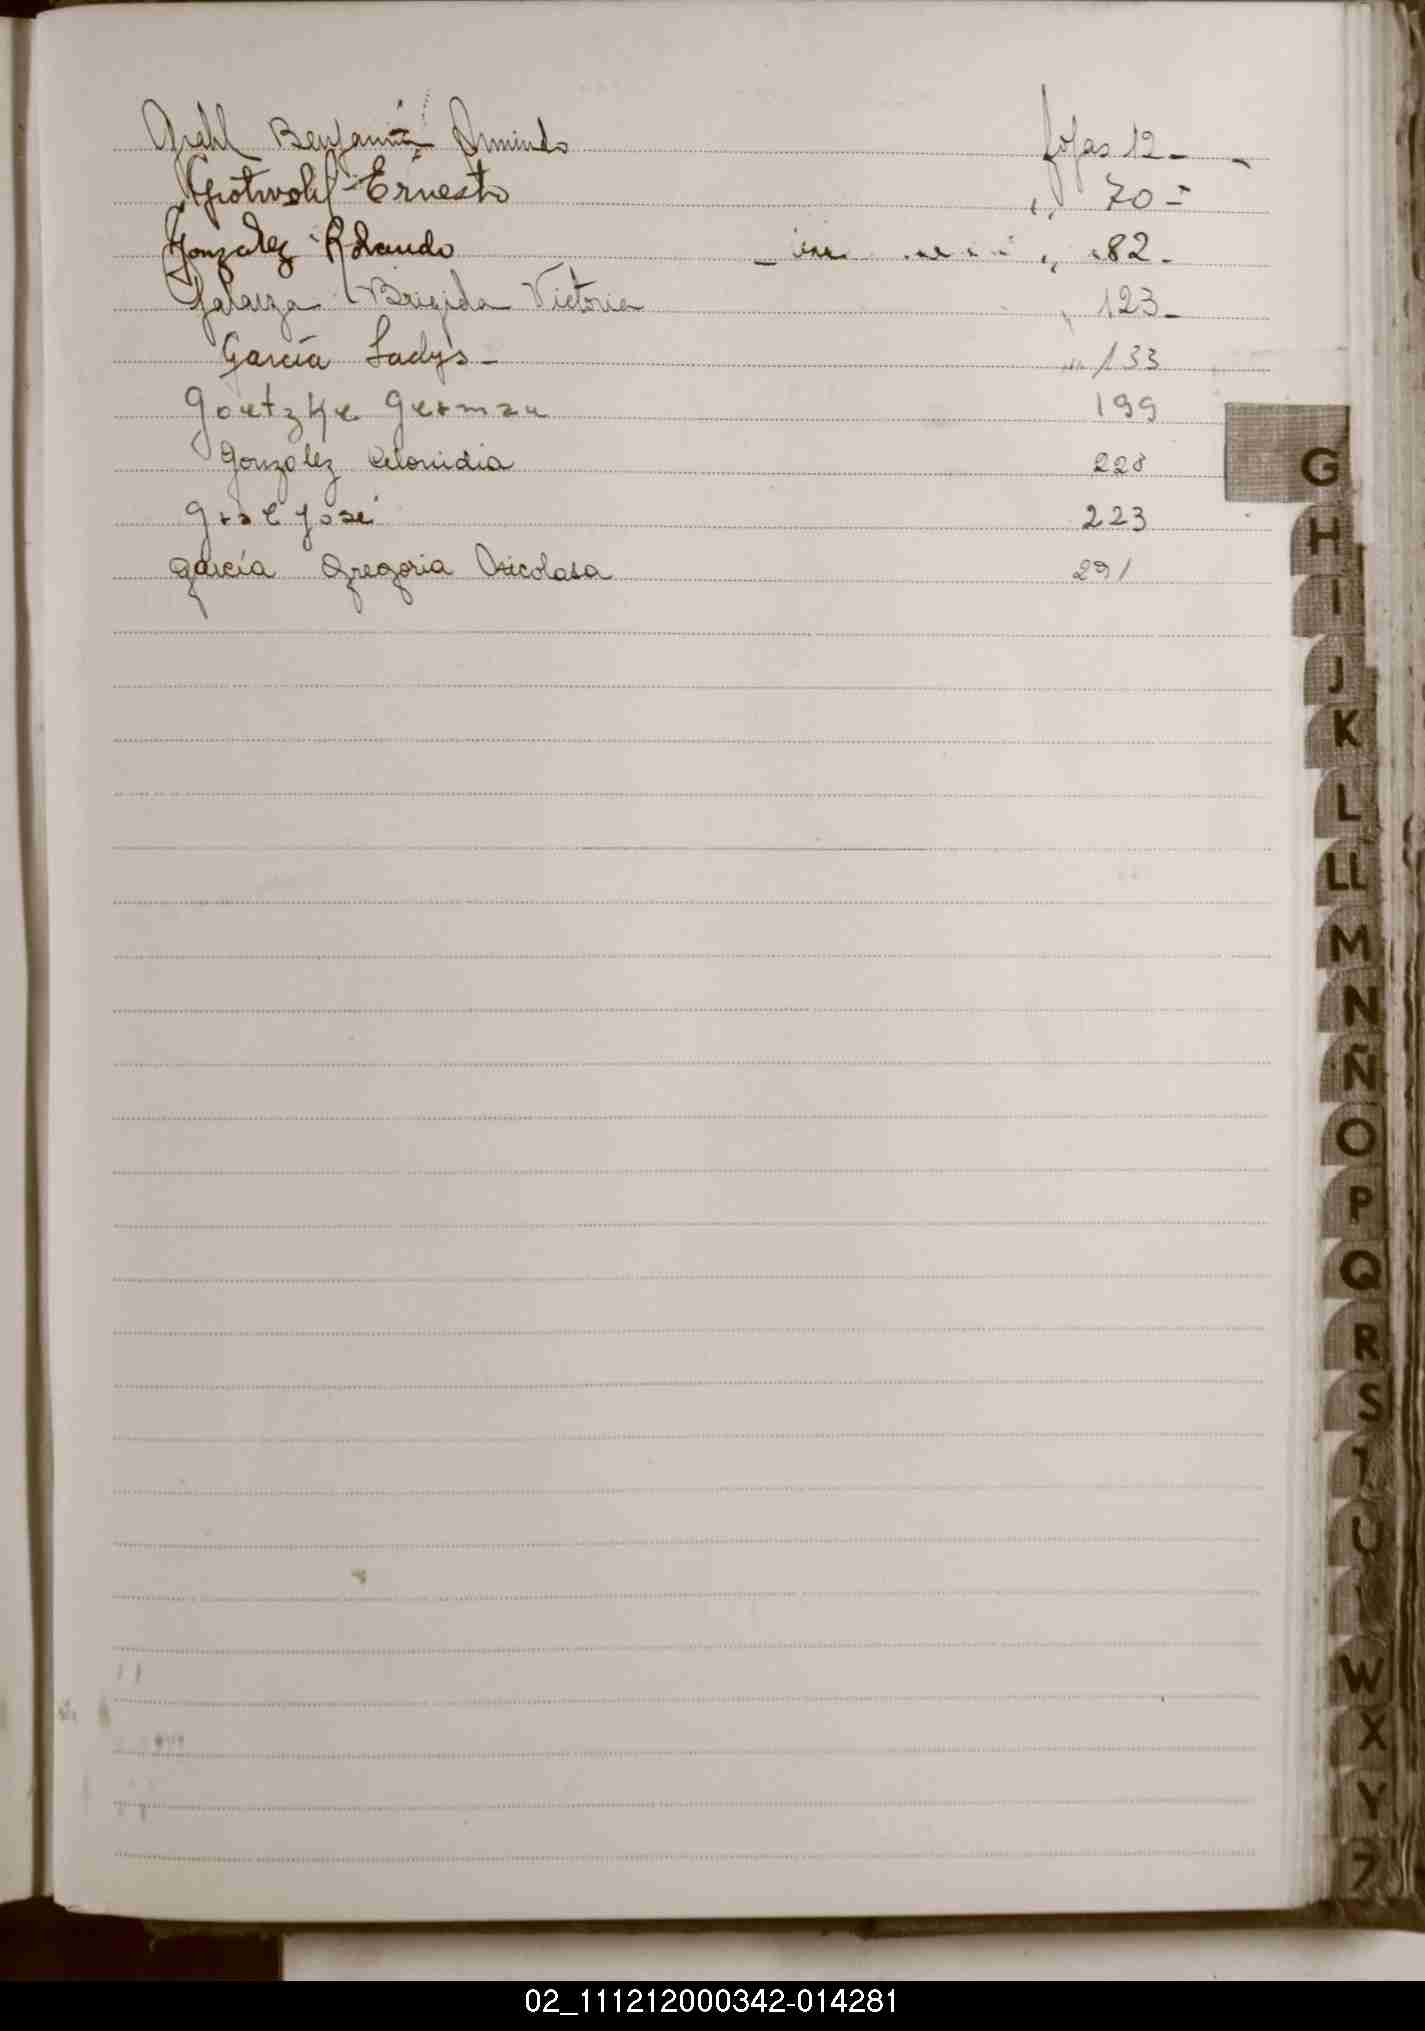 Grahl Benjamín Armindo fojas 12-
Grotwohl Ernesto " 70=
Gonzalez Rolando " 82-
Galarza Brigida Victoria " 123-
García Ladys- " 133
Goetzke German 199
Gonzalez Celonidia 228
Graf José 223
García Gregoria Nicolasa 291
G
H
I
J
K
L
LL
M
N
Ñ
O
P
Q
R
S
T
U
W
X
Y
Z
02_111212000342-014281